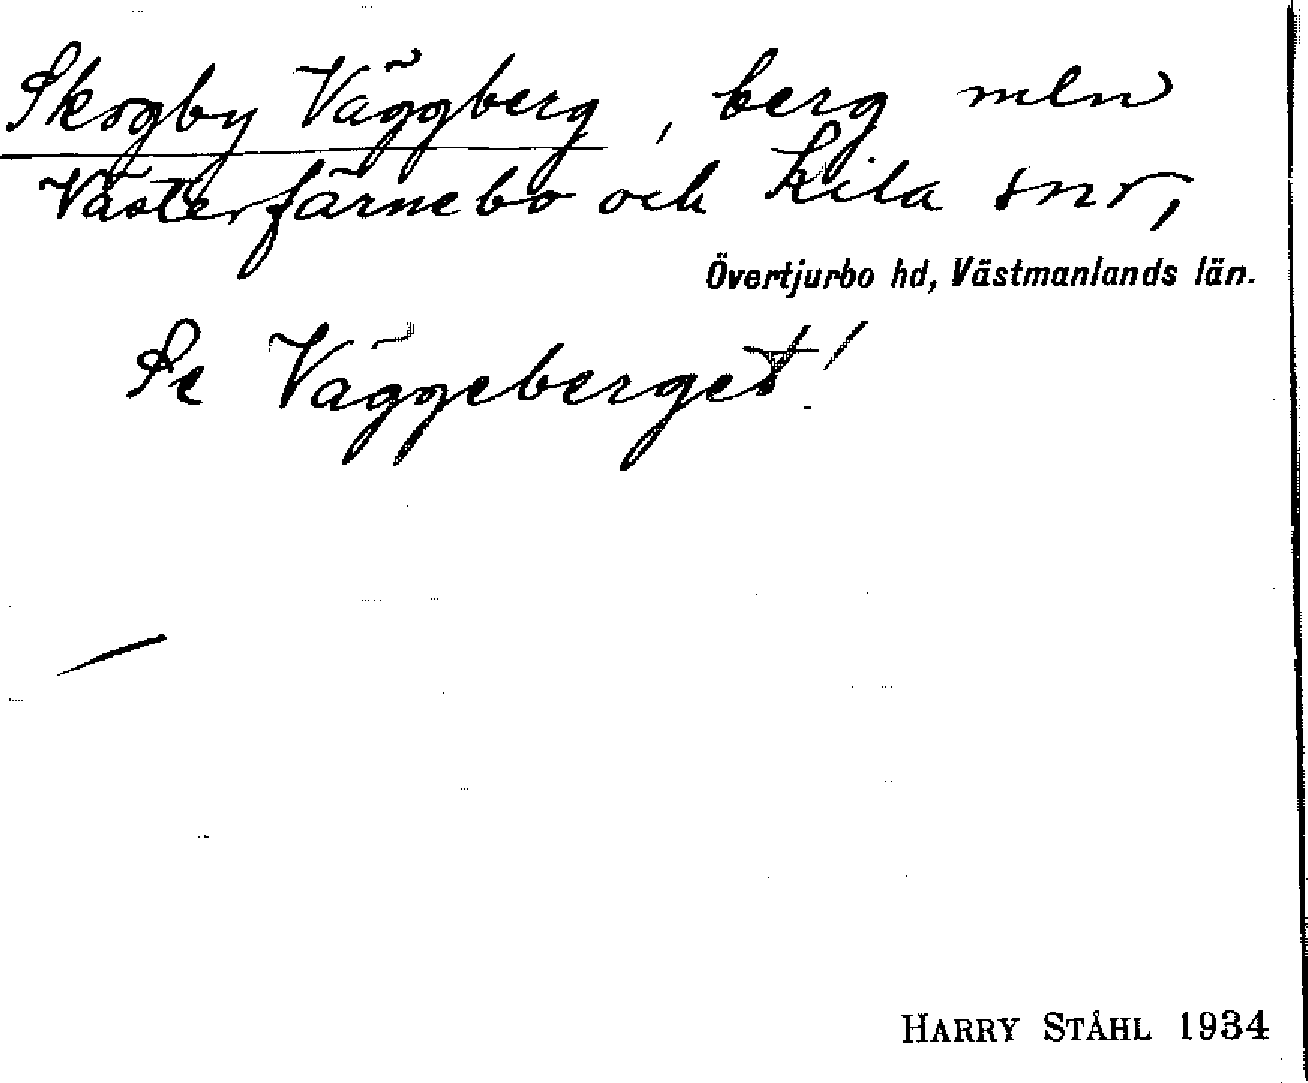 Skogby Väggberg, berg mln
Västerfärnebo och Kila snr,
Övertjurbo hd, Västmanlands län.
Se Väggeberget!
HARRY STÅHL 1934